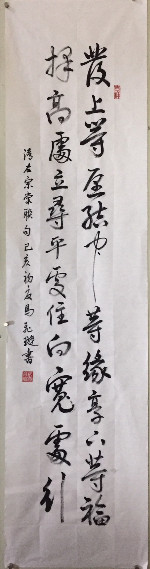 發上等愿结中等缘享下等福
择高處立尋平處住向寬處行
清左宗棠联句己亥初夏馬
書